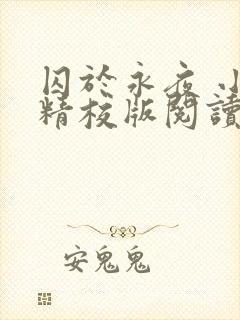 囚於永夜 小
精校版閱讀
安鬼鬼